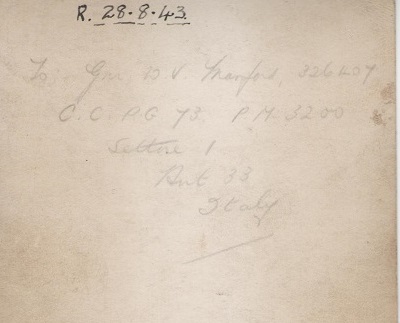 R. 28-8-43.
To:- Gnr. D V. 326407
C.C. P.G 73. P.M. 3200
Settore 1
Hut 33
Italy